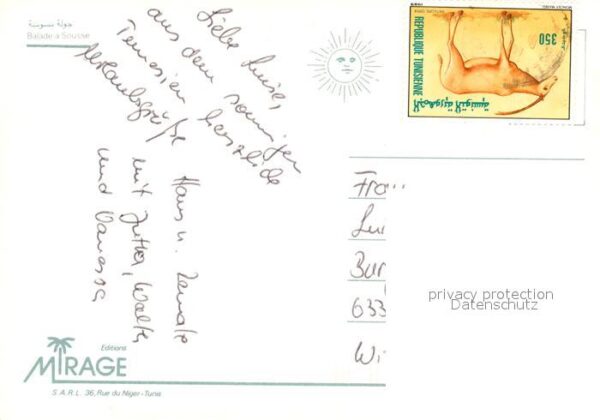 جولة بسوسة
Balade à Sousse
Liebe Luise,
aus dem sonnigen
Tunesien herzliche
Urlaubsgrüße
Hans u. Renate
mit Jutta, Walter
und Vanessa
350
REPUBLIQUE TUNISIENNE
الجمهورية التونسية
Frau
Lui
Bur
633
privacy protection
Datenschutz
Editions
MIRAGE
S.A.R.L. 36, Rue du Niger-Tunis